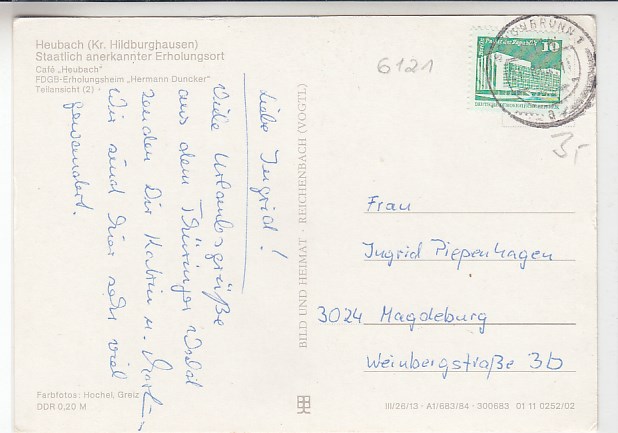 Heubach (Kr. Hildburghausen)
Staatlich anerkannter Erholungsort
Café „Heubach"
FDGB-Erholungsheim „Hermann Duncker"
Teilansicht (2)
6121
10
3,-
Liebe Ingrid!
Viele Urlaubsgrüße
aus dem Thüringer Wald
senden Dir Katrin u.
Wir sind hier sehr viel
gewandert.
BILD UND HEIMAT · REICHENBACH (VOGTL)
Frau
Ingrid Piepenhagen
3024 Magdeburg
Weinbergstraße 3b
Farbfotos: Hochel, Greiz
DDR 0,20 M
III/26/13 · A1/683/84 · 300683 01 11 0252/02